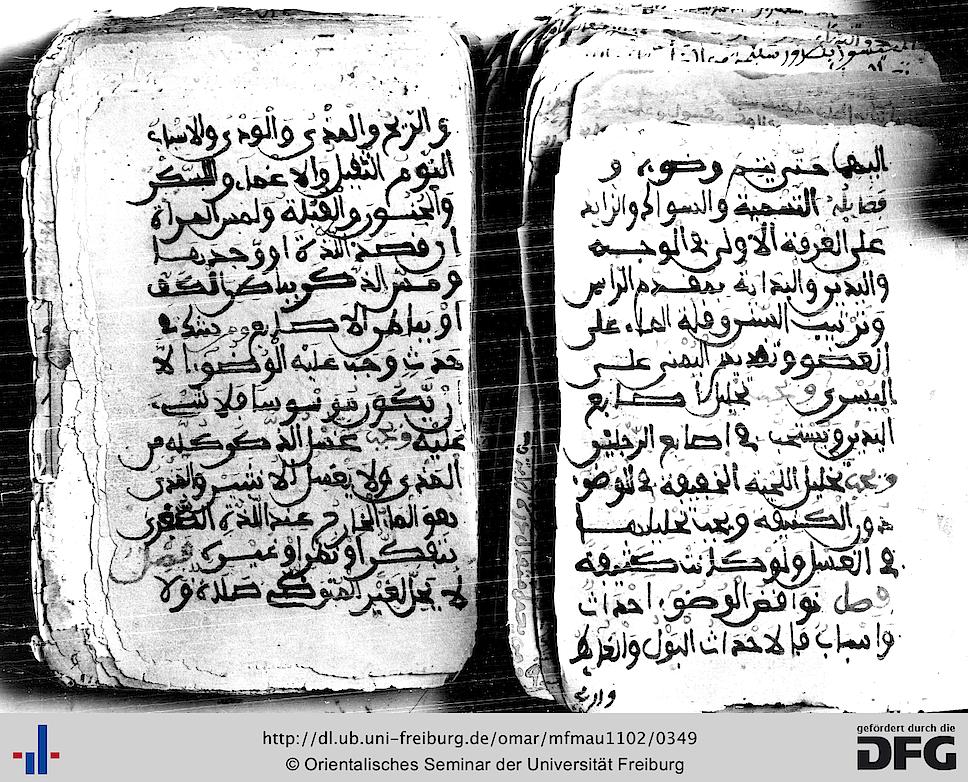 اليها حتى يتم وضوءه و
فضايله التسمية والسواك والزايد
على الغرفة الاولى في الوجه
واليدين والبداية بمقدم الراس
وترتيب السنن وقلة الماء على
العضو وتقديم اليمنى على
اليسرى ويجب تخليل اصابع
اليدين ويستحب في اصابع الرجلين
ويجب تخليل اللحية الخفيفة في الوضوء
دون الكثيفة ويجب تخليلها
في الغسل ولو كانت كثيفة
فصل نواقض الوضوء احداث
واسباب فالاحداث البول والغايط
والريح والمذي والودي والاسباب
النوم الثقيل والاغماء والسكر
والجنون والقبلة ولمس المراة
ان قصد اللذة او وجدها
ومس الذكر بباطن الكف
او بباطن الاصابع ومن شك في
حدث وجب عليه الوضوء الا
ان يكون موسوسا فلا شيء
عليه ويجب غسل الذكر كله من
المذي ولا يغسل الانثيين والمذي
هو الماء الخارج عند اللذة الصغرى
بتفكر او نظر او غيره فصل
لا يحل لغير المتوضي صلاة ولا
http://dl.ub.uni-freiburg.de/omar/mfmau1102/0349
© Orientalisches Seminar der Universität Freiburg
gefördert durch die
DFG